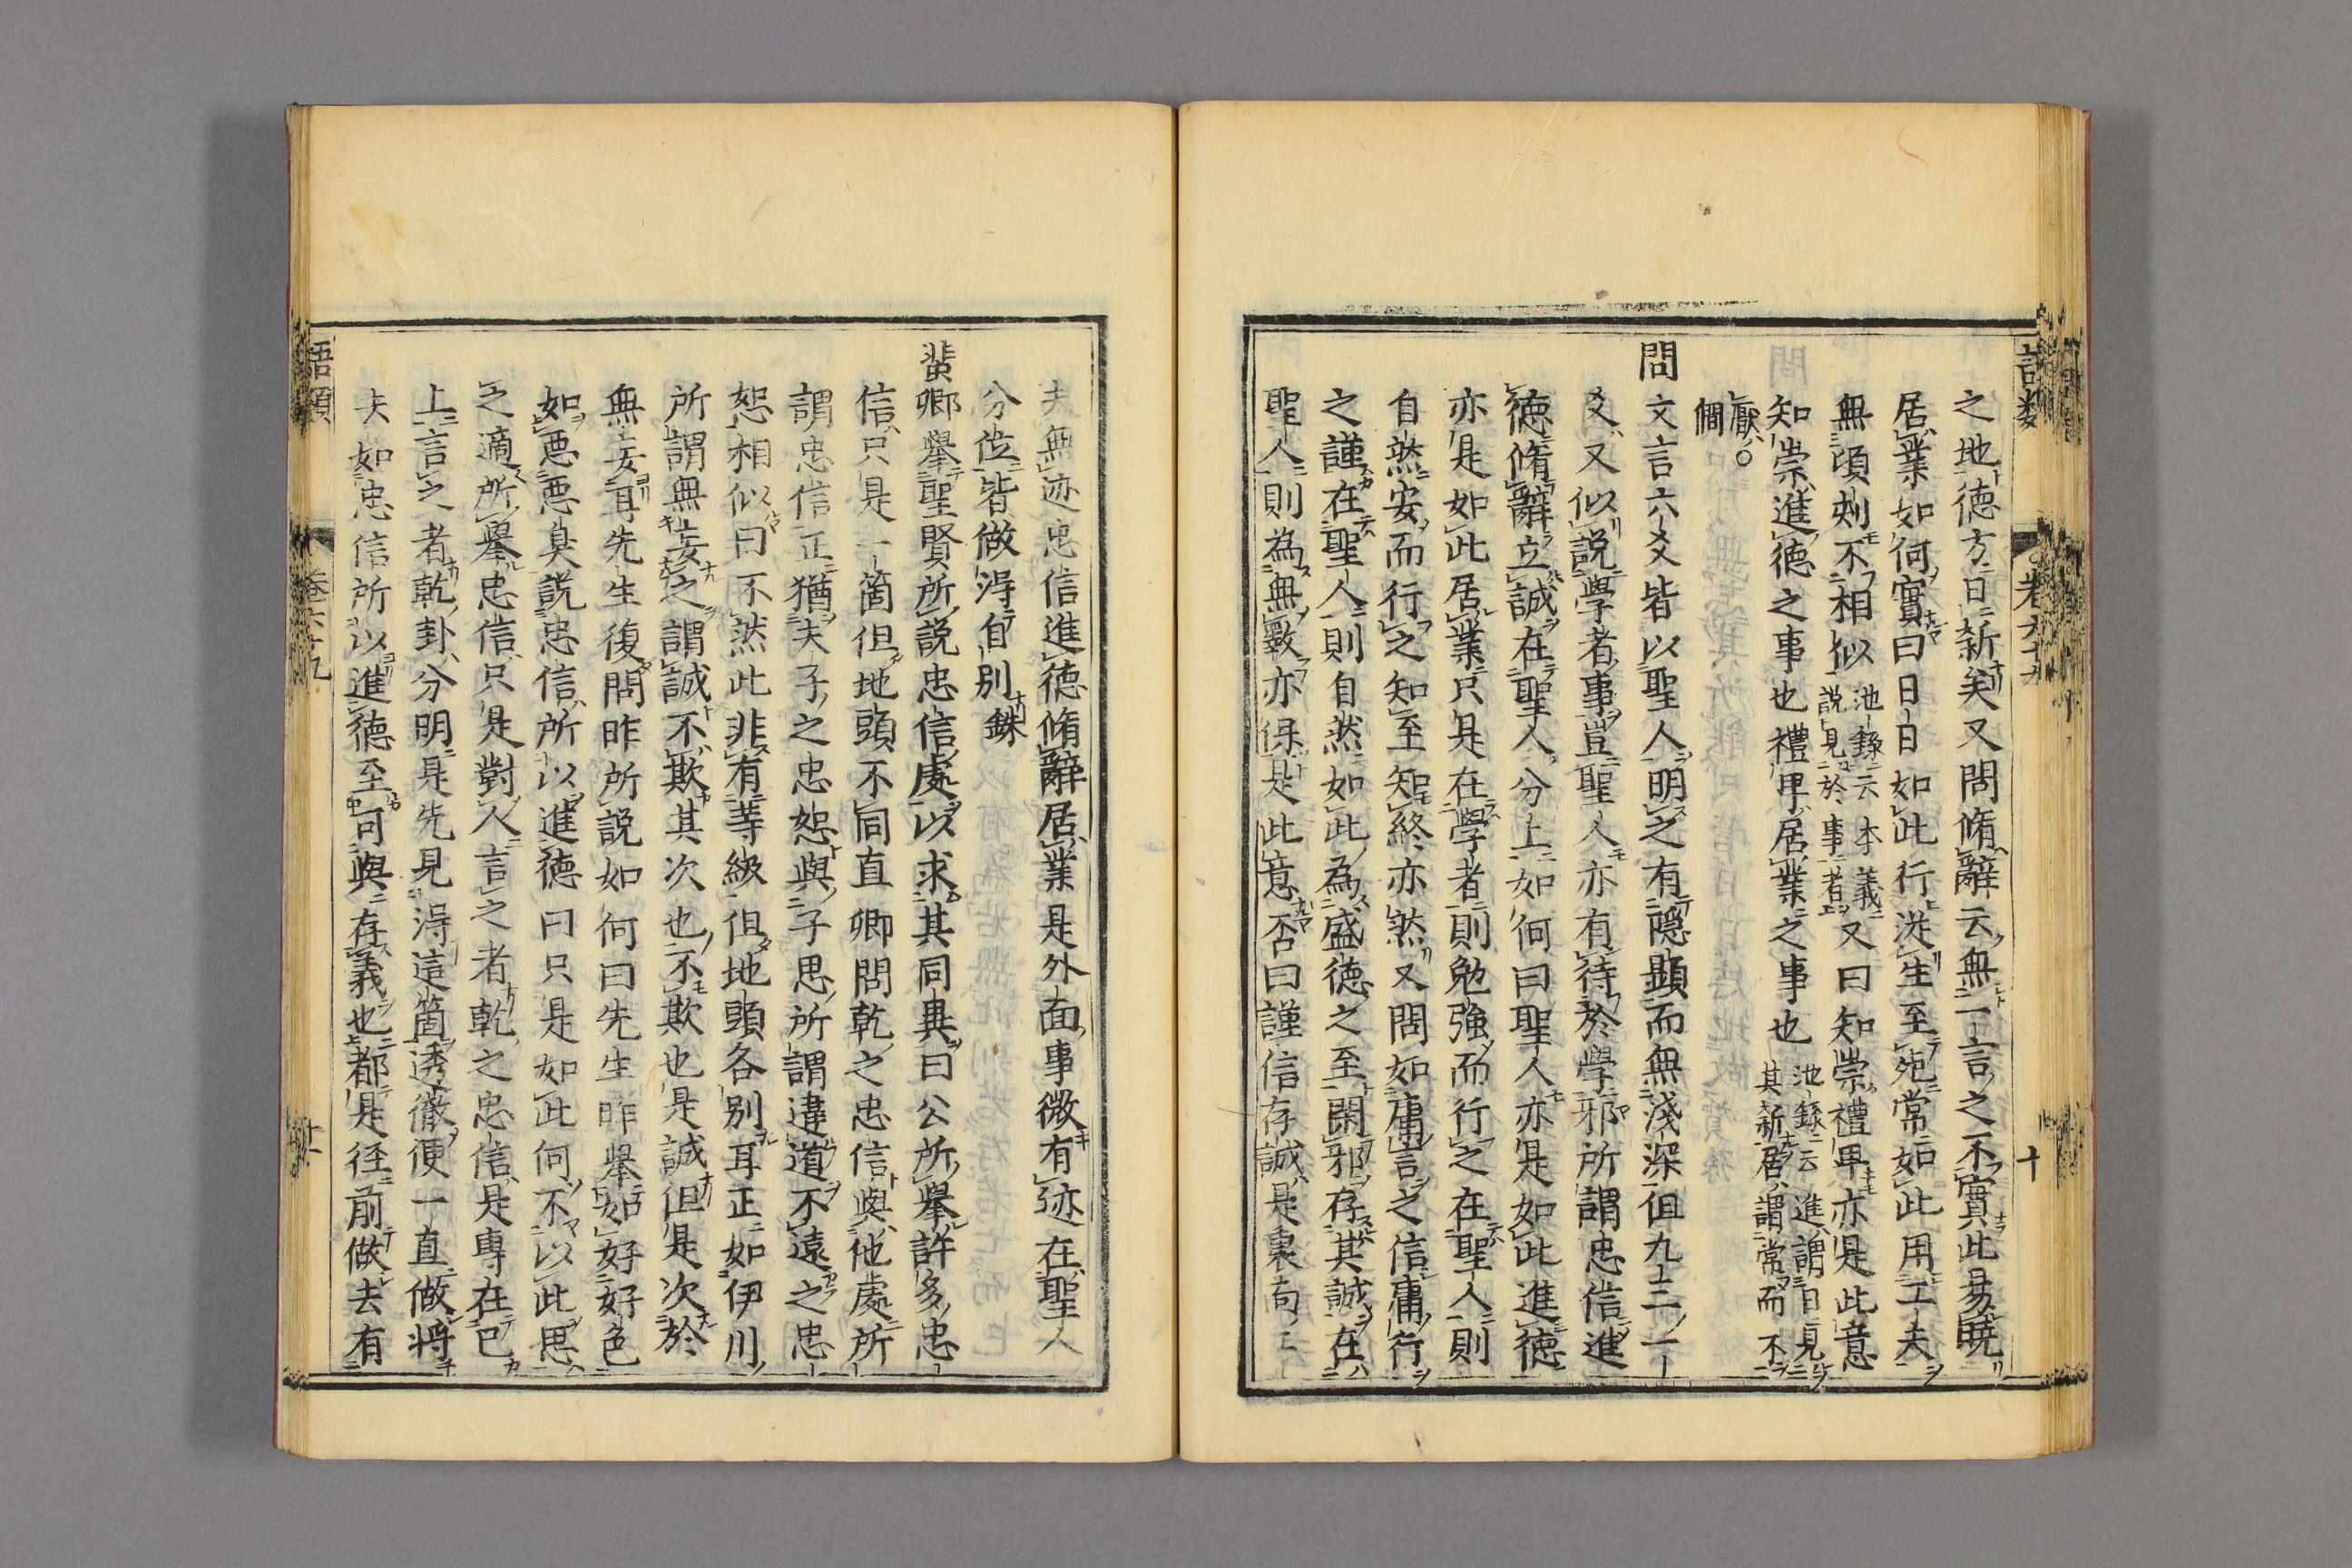 之地德方日新矣又問脩辭云無一言之不實此易曉
居業如何實曰日日如此行從生至死常如此用工夫
無頃刻不相似池錄云本義說見於事者又曰知崇禮卑亦是此意
知崇進德之事也禮卑居業之事也池錄云進謂日見其新居謂常而不
厭○
僩
問文言六爻皆以聖人明之有隱顯而無淺深但九三一
爻又似說學者事豈聖人亦有待於學邪所謂忠信進
德脩辭立誠在聖人分上如何曰聖人亦是如此進德
亦是如此居業只是在學者則勉強而行之在聖人則
自然安而行之知至知終亦然又問如庸言之信庸行
之謹在聖人則自然如此為盛德之至閑邪存其誠在
聖人則為無斁亦保是此意否曰謹信存誠是裏面工
夫無迹忠信進德脩辭居業是外面事微有迹在聖人
分位皆做得自別銖
蜚卿舉聖賢所說忠信處以求其同異曰公所舉許多忠
信只是一箇但地頭不同直卿問乾之忠信與他處所
謂忠信正猶夫子之忠恕與子思所謂違道不遠之忠
恕相似曰不然此非有等級但地頭各別耳正如伊川
所謂無妄之謂誠不欺其次也不欺也是誠但是次於
無妄耳先生復問昨所說如何曰先生昨舉如好好色
如惡惡臭說忠信所以進德曰只是如此何不以此思
之適所舉忠信只是對人言之者乾之忠信是專在己
上言之者乾卦分明是先見得這箇透徹便一直做將
去如忠信所以進德至可與存義也都是徑前做去有
語類
卷六十九
十